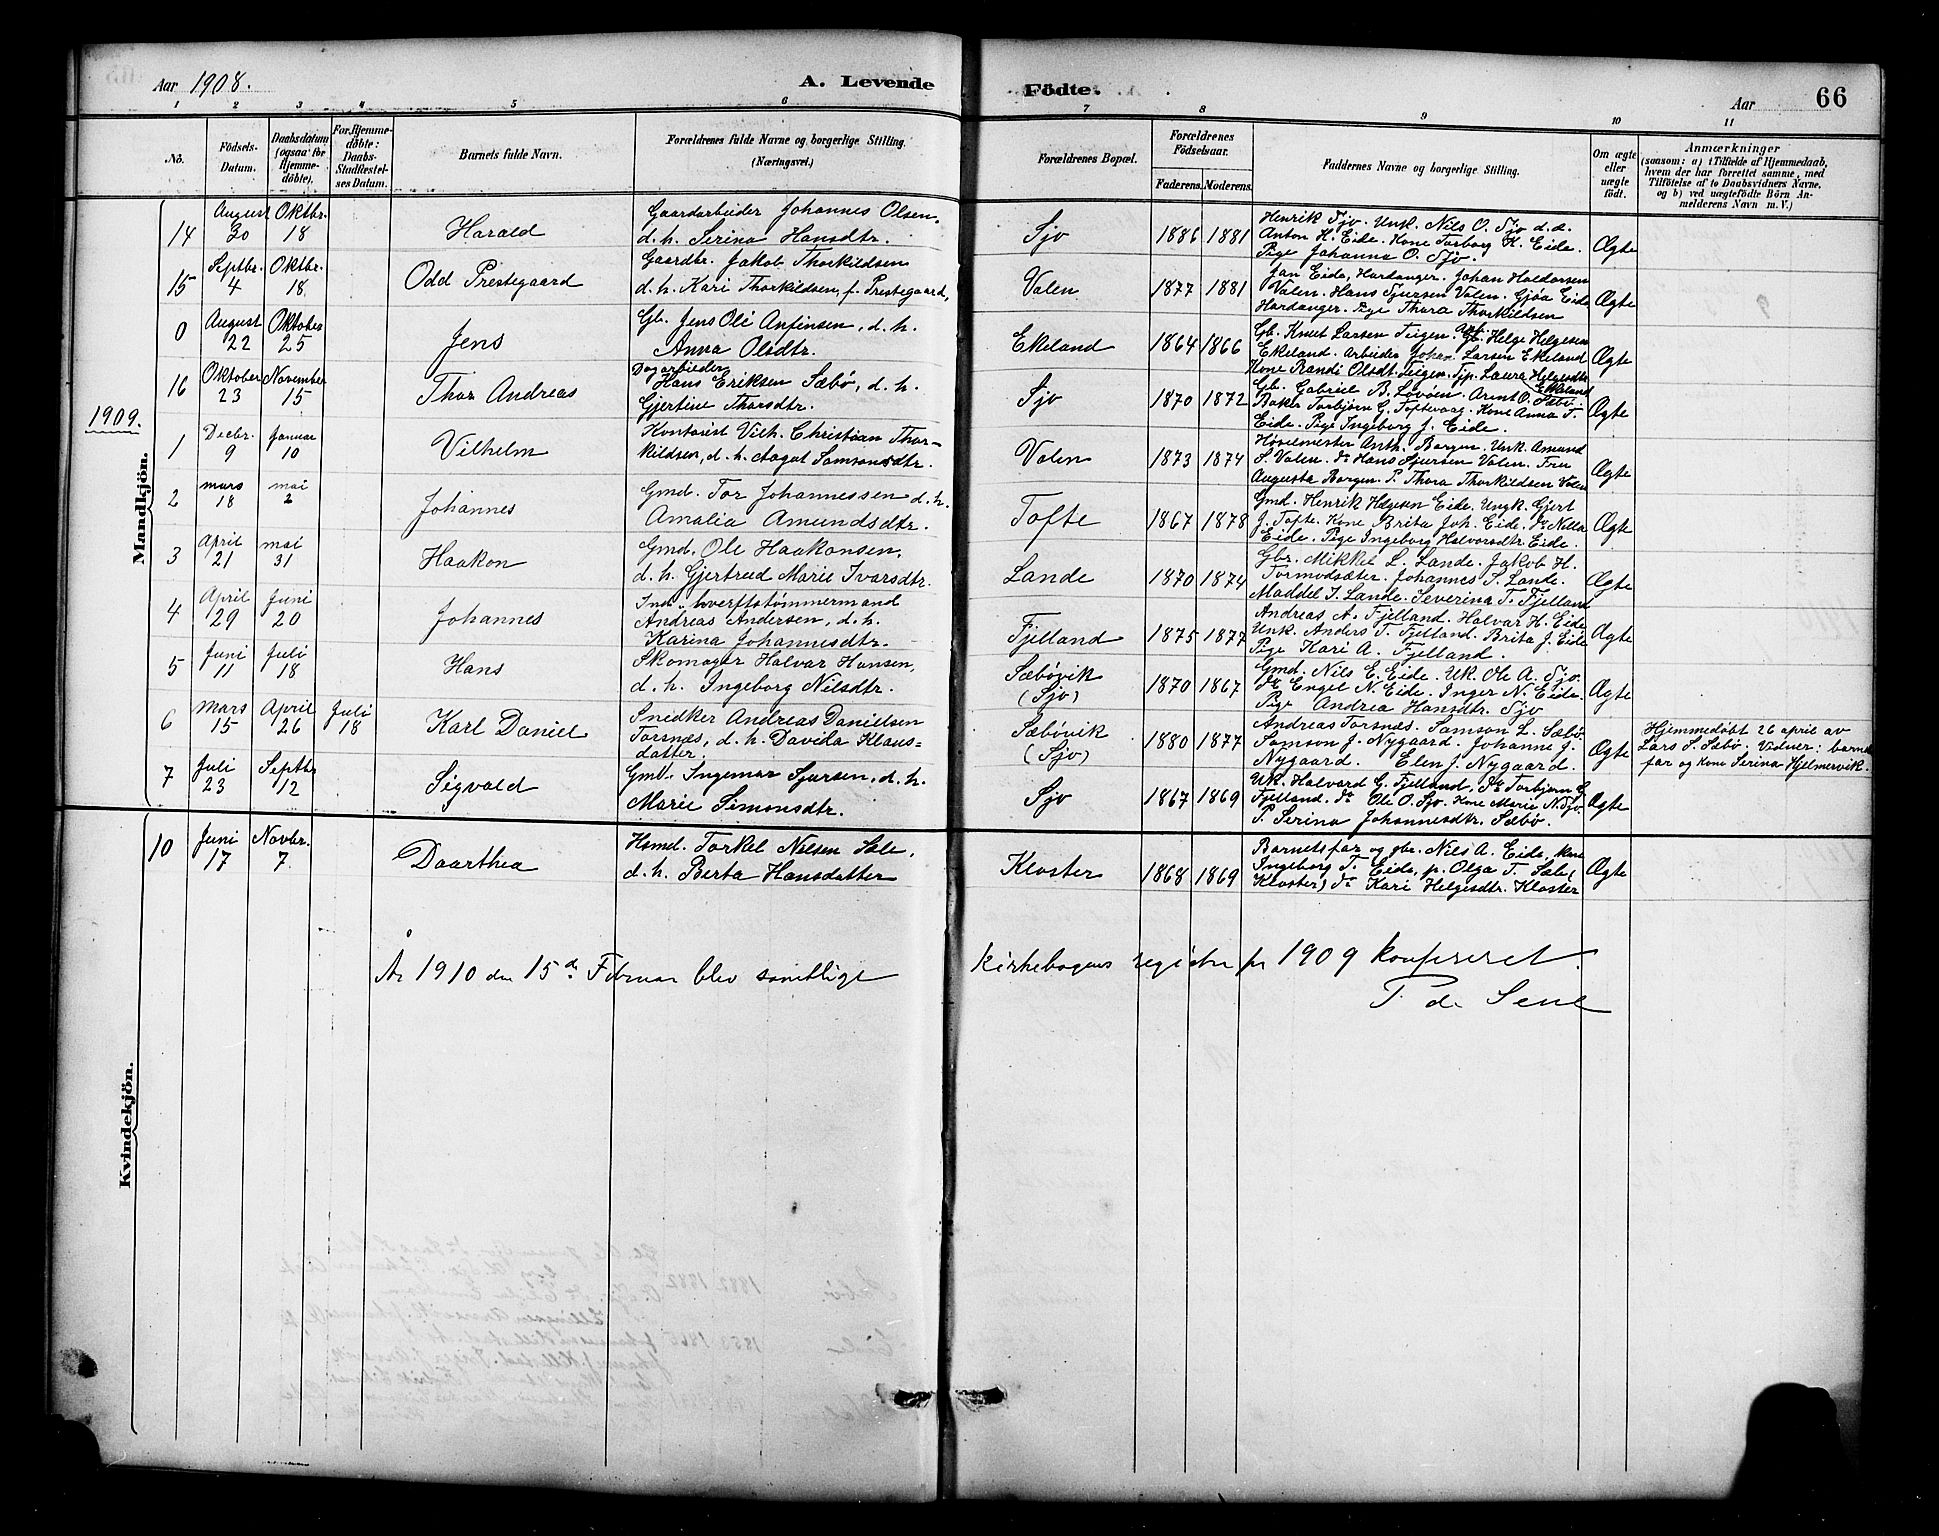 Aar 1908. A. Levende Födte. Aar 66
1 2 3 4 5 6 7 8 9 10 11
No. Födsels-Datum. Daabsdatum (ogsaa for Hjemmedöbte). For Hjemmedöbte: Daabs-Stadfæstelses Datum. Barnets fulde Navn. Forældrenes fulde Navne og borgerlige Stilling. (Næringsvei.) Forældrenes Bopæl. Forældrenes Födselsaar. Faderens. Moderens. Faddernes Navne og borgerlige Stilling. Om ægte eller uægte födt. Anmærkninger (saasom: a) i Tilfælde af Hjemmedaab, hvem der har forrettet samme, med Tilföielse af to Daabsvidners Navne, og b) ved uægtefödte Börn Anmelderens Navn m. V.)
Mandkjön.
14 August 30 Oktbr. 18 Harald
Gaardarbeider Johannes Olsen,
d. h. Serina Hansdtr.
Sjo 1886 1881
Henrik Sjo. Unk. Nils O. Sjo d.d.
Anton H. Eide. Kone Torborg K. Eide.
Pige Johanna O. Sjo.
Ægte
15 Septbr. 4 Oktbr. 18. Odd Prestegaard
Gaardbr. Jakob Thorkildsen
d. h. Kari Thorkildsen, f. Prestegaard,
Valen 1877 1881
Jan Eide, Hardanger. Johan Haldorsen
Valen. Hans Sjursen Valen. Gjøa Eide
Hardanger. Pige Thora Thorkildsen
Ægte
0 August 22 Oktober 25 Jens
Gb. Jens Ole Anfinsen, d. h.
Anna Olsdtr.
Ekeland 1864 1866
Gb. Knut Larsen Teigen. Helge Helgesen
Ekeland. Arbeider Johan Larsen Ekeland
Kone Randi Olsdt. Teigen. Tjp. Laura Helgesdtr Ekeland
Ægte
16 Oktober 23 November 15 Thor Andreas
Dagarbeider
Hans Eriksen Sæbø, d. h.
Gjertine Thorsdtr.
Sjo 1870 1872
Gb. Gabriel B. Løvøen. Arent O. Sæbø.
Baker Torbjørn G. Toftevaag. Kone Anna T.
Eide. Pige Ingeborg J. Eide.
Ægte
1909.
1 Decbr. 9 Januar 10 Vilhelm
Kontorist Vilh. Christian Thor-
kildsen, d. h. Aagot Samsonsdtr.
Valen 1873 1874
Høvelmester Anth. Borgen. Unk. Amund
S. Valen. do Hans Sjursen Valen. Fru
Augusta Borgen. P. Thora Thorkildsen Valen
Ægte
2 mars 18 mai 2 Johannes
Gmd. Tor Johannessen d. h.
Amalia Amundsdtr.
Tofte 1867 1878
Gmd. Henrik Hægesen Eide. Ungk. Gjert
J. Tofte. Kone Brita Joh. Eide. do Nella
Eide. Pige Ingeborg Halvorsdtr. Eide.
Ægte
3 April 21 mai 31 Haakon
Gmd. Ole Haakonsen,
d. h. Gjertrud Marie Ivarsdtr.
Lande 1870 1874
Gbr. Mikkel L. Lande. Jakob H.
Tormodsæter. Johannes S. Lande.
Maddel I. Lande. Severina T. Fjelland
Ægte
4 April 29 Juni 20 Johannes
Ind. hverftstømmermand
Andreas Andersen, d. h.
Karina Johannesdtr.
Fjelland 1875 1877
Andreas A. Fjelland. Halvar H. Eide
Unk. Anders T. Fjelland. Brita J. Eide
Pige Kari A. Fjelland.
Ægte
5 Juni 11 Juli 18 Hans
Skomager Halvar Hansen,
d. h. Ingeborg Nilsdtr.
Sæbøvik (Sjo) 1870 1867
Gmd. Nils E. Eide. Uk. Ole A. Sjo.
do Engel N. Eide. Inger N. Eide.
Pige Andrea Hansdtr. Sjo
Ægte
6 Mars 15 April 26 Juli 18 Karl Daniel
Snidker Andreas Danielsen
Torsnæs, d. h. Davida Klaus-
datter.
Sæbøvik (Sjo) 1880 1877
Andreas Torsnæs. Samson L. Sæbø.
Samson J. Nygaard. Johanne J.
Nygaard. Elen J. Nygaard.
Ægte
Hjemmedøbt 26 april av
Lars S. Sæbø. Vidner: barnets
far og kone Serina Hjelmervik.
7 Juli 23 Septbr 12 Sigvald
Gmd. Ingemar Sjursen, d. h.
Marie Simonsdtr.
Sjo 1867 1869
Uk. Halvard G. Fjelland, do Torbjørn G
Fjelland. do Ole O. Sjo. Kone Marie N. Sjo.
P. Serina Johannesdtr. Sæbø.
Ægte
Kvindekjön.
10 Juni 17 Novbr. 7. Daarthea
Hsmd. Torkel Nilsen Sale,
d. h. Berta Hansdatter
Kloster 1868 1869
Barnets far og gbr. Nils A. Eide, kone
Ingeborg T. Eide, p. Olga T. Sale (
Kloster) do Kari Helgesdtr. Kloster
Ægte
År 1910 den 15de Februar blev samtlige kirkebogens registre for 1909 konfereret.